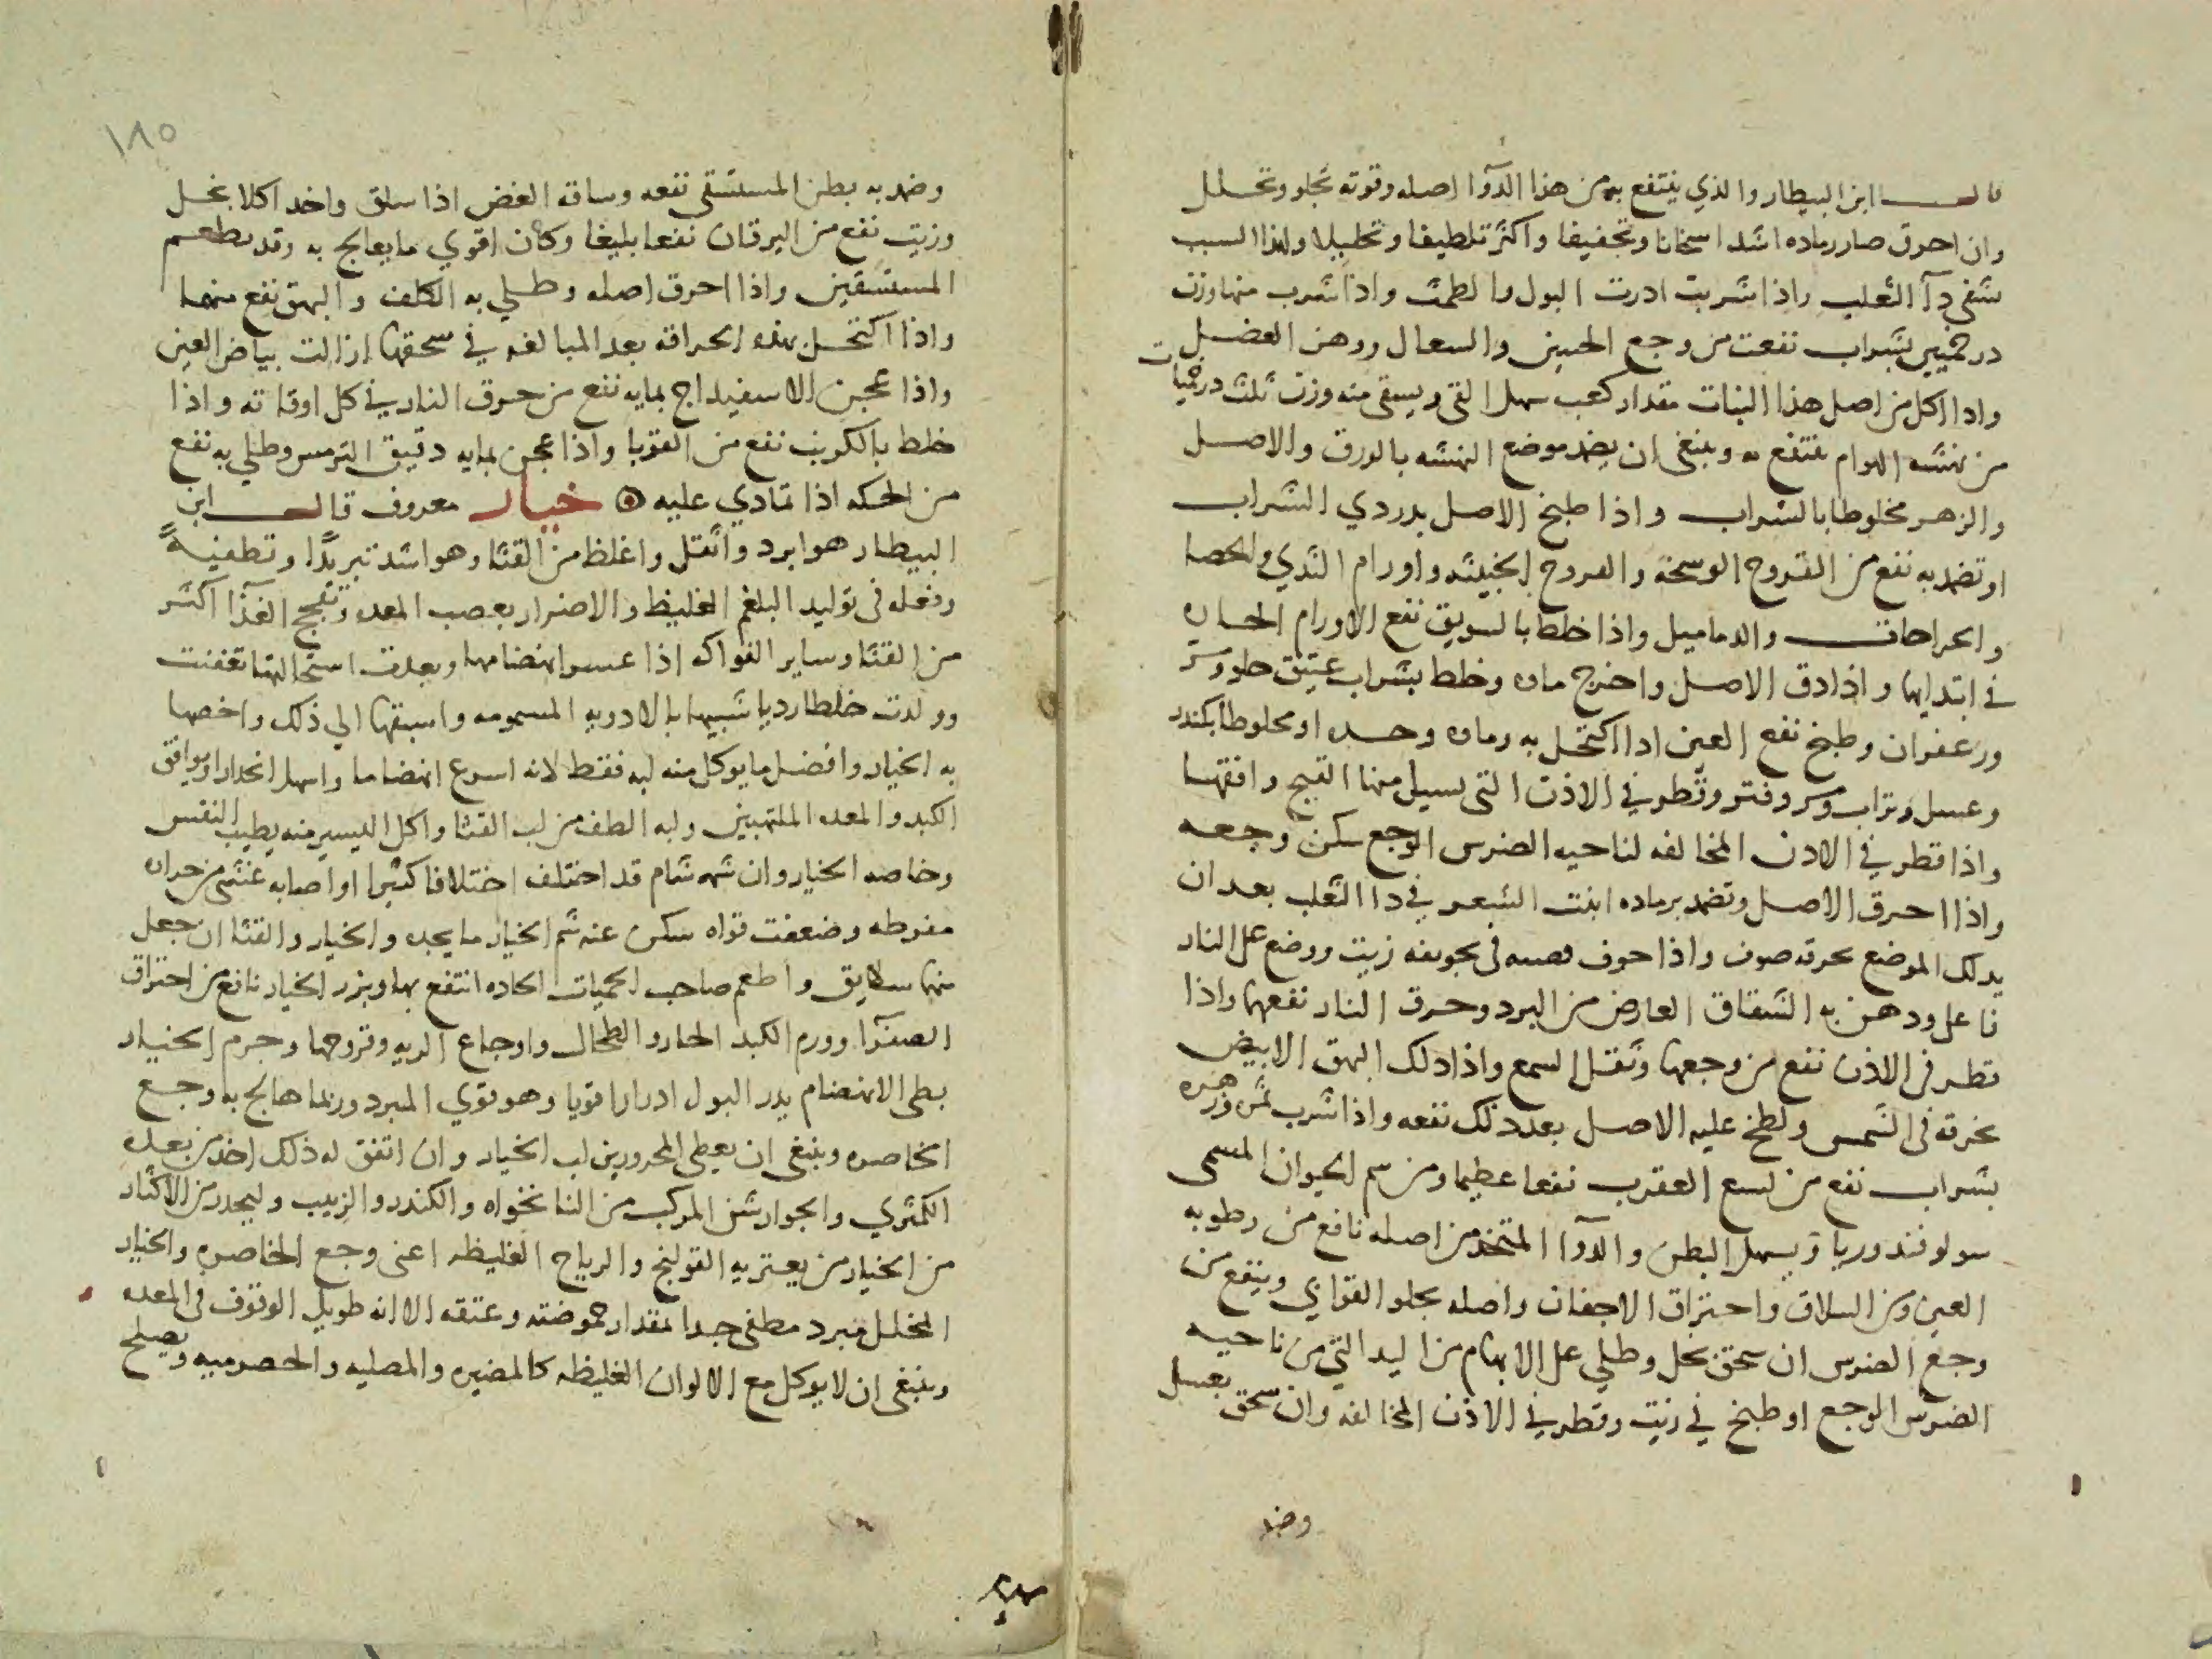 قال ابن البيطار والذي ينتفع به من هذا الدوآ اصله وقوته تجلو وتحلل
وان احرق صار رماده اشد اسخانا وتجفيفا واكثر تلطيفا وتحليلا ولهذا السبب
شفي دآ الثعلب واذا شربت ادرت البول والطمث واذا شرب منها وزن
درخميين بشراب نفعت من وجع الجبين والسعال ووهن العضل
واذا اكل من اصل هذا النبات مقدار كعب سهل القي ويسقى منه وزن ثلث درخميات
من نهشه الهوام فتنفع به وينبغي ان يضمد موضع النهشه بالورق والاصل
والزهر مخلوطا بالشراب واذا طبخ الاصل بدردي الشراب
او تضمد به نفع من القروح الوسخة والقروح الخبيثه واورام الثدي والخصا
والجراحات والدماميل واذا خلط بالسويق نفع الاورام الحاره
في ابتدايها واذا دق الاصل واخرج ماه وخلط بشراب عتيق حلو ومر
وزعفران وطبخ نفع العين اذا اكتحل به وماه وحده او مخلوطا بكندر
وعسل وشراب ومر وفتر وقطر في الاذن التي يسيل منها القيح وافقها
واذا قطر في الاذن المخالفه لناحيه الضرس الوجع سكن وجعه
واذا احرق الاصل وتضمد برماده انبت الشعر في دا الثعلب بعد ان
يدلك الموضع بخرقه صوف واذا جوف اصله في تجويفه زيت ووضع على النار
فاغلى ودهن به الشقاق العارض من البرد وحرق النار نفعها واذا
قطر في الاذن نفع من وجعها وثقل السمع واذا دلك البهق الابيض
بخرقه في الشمس ولطخ عليه الاصل بعد ذلك نفعه واذا شرب ثمره وزهره
بشراب نفع من لسع العقرب نفعا عظيما ومن سم الحيوان المسمى
سولوفندوريا ويسهل البطن والدوآ المتخذ من اصله نافع من رطوبه
العين ومن السلاق واحتراق الاجفان واصله يجلو القوابي وينفع من
وجع الضرس ان سحق بخل وطلي على الابهام من اليد التي من ناحيه
الضرس الوجع او طبخ في زيت وقطر في الاذن المخالفه وان سحق بعسل
وضمد
١٨٥
وضمد به بطن المستسقي نفعه وساقه الغض اذا سلق واخد اكلا بخل
وزيت نفع من اليرقان نفعا بليغا وكان اقوي ما يعالج به وقد يطعم
المستسقين واذا احرق اصله وطلي به الكلف والبهق نفع منهما
واذا اكتحل بهذه الحراقه بعد المبالغه في سحقها ازالت بياض العين
واذا عجن الاسفيداج بمايه نفع من حرق النار في كل اوقاته واذا
خلط بالكبريت نفع من القوبا واذا عجن بمايه دقيق الترمس وطلي به نفع
من الحكه اذا تمادي عليه خيار معروف قال ابن
البيطار هو ابرد واثقل واغلظ من القثا وهو اشد تبريدًا وتطفيةً
وفعله في توليد البلغم الغليظ والاضرار بعصب المعده وتفجج الغذآ اكثر
من القثا وساير الفواكه اذا عسر انهضامها وبعدت استحالتها تعفنت
وولدت خلطا رديا شبيها بالادويه المسمومه واسبقها الي ذلك واخصها
به الخيار وافضل ما يوكل منه لبه فقط لانه اسرع انهضاما واسهل انحدارا ويوافق
الكبد والمعده الملتهبين ولبه الطف من لب القثا واكل اليسير منه يطيب النفس
وخاصه الخيار وان شمه شام قد اختلف اختلافا كثيرا او اصابه غشي من حراره
مفرطه وضعفت قواه سكن عنه شم الخيار ما يجده والخيار والقثا ان جعل
منها سلايق واطعم صاحب الحميات الحاده انتفع بها وبزر الخيار نافع من احتراق
الصفرآ وورم الكبد الحار والطحال واوجاع الريه وقروحها وجرم الخيار
بطي الانهضام يدر البول ادرارا قويا وهو قوي المبرد وربما هاج به وجع
الخاصره وينبغي ان يعطي المحرورين لب الخيار وان اتفق له ذلك اخذ من بعده
الكمثري والجوارشن المركب من النانخواه والكندر والزبيب وليحذر من الاكثار
من الخيار من يعتريه القولنج والرياح الغليظه اعني وجع الخاصره والخيار
المخلل مبرد مطفي جدا بمقدار حموضته وعتقه الا انه طويل الوقوف في المعده
وينبغي ان لا يوكل مع الالوان الغليظه كالمضيره والمصليه والحصرميه ويصلح